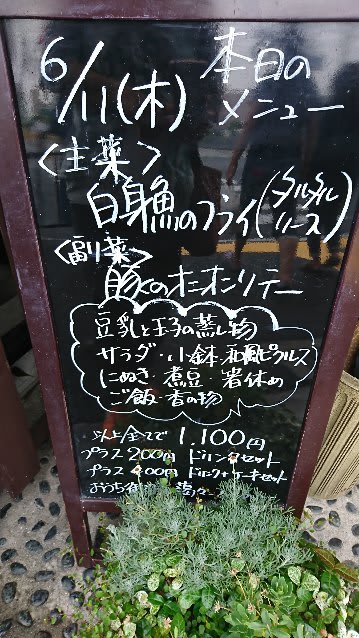 6/11(木) 本日の
メニュー
<主菜>
白身魚のフライ(タルタル
ソース)
<副菜>
豚のオニオンソテー
豆乳と玉子の蒸し物
サラダ・小鉢・和風ピクルス
にぬき・煮豆・箸休め
ご飯・香の物
以上全てで 1,100円
プラス 200円 ドリンクセット
プラス 400円 ドリンク+ケーキセット
おうち